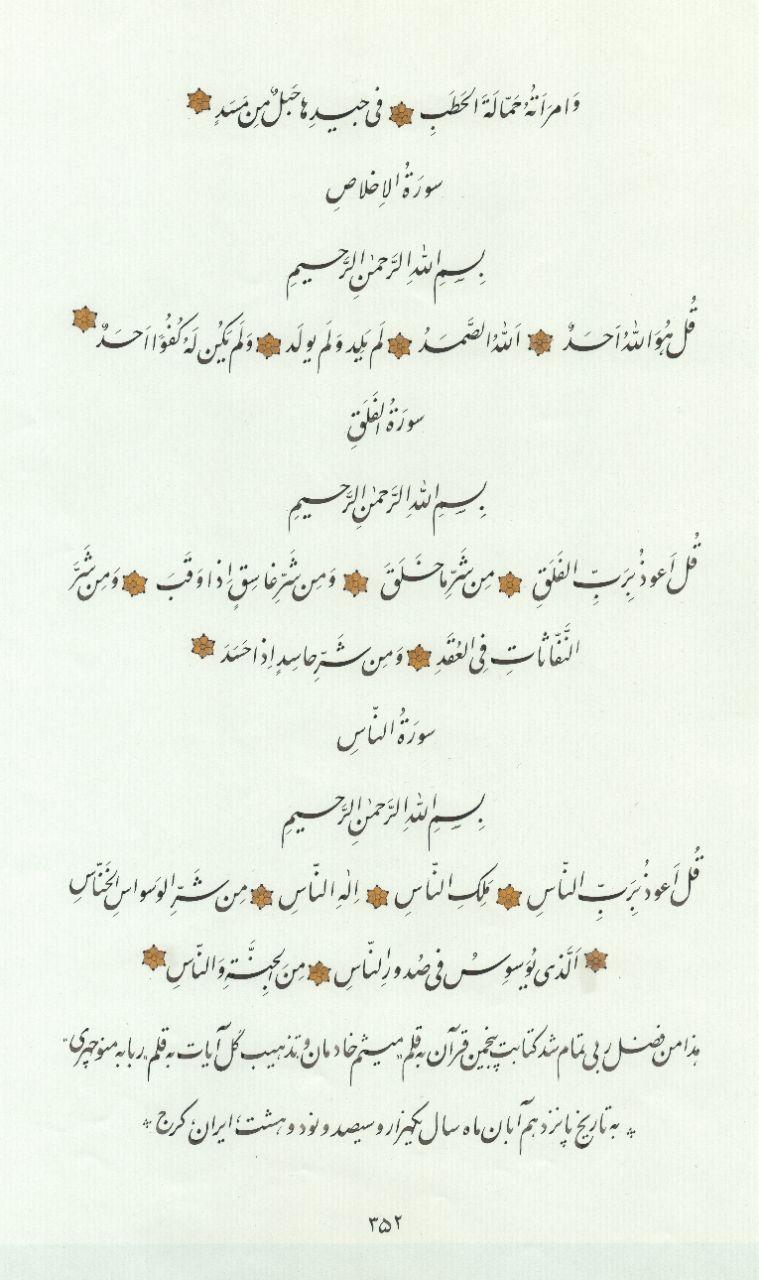 وَامرَاَتُهُ حَمّالَةَ الحَطَبِ ۞ فی جیدِها حَبلٌ مِن مَسَدٍ ۞
سورَةُ الاِخلاصِ
بِسمِ اللّٰهِ الرَّحمٰنِ الرَّحیمِ
قُل هُوَ اللّٰهُ اَحَدٌ ۞ اَللّٰهُ الصَّمَدُ ۞ لَم یَلِد وَلَم یولَد ۞ وَلَم یَکُن لَهُ کُفُوًا اَحَدٌ ۞
سورَةُ الفَلَقِ
بِسمِ اللّٰهِ الرَّحمٰنِ الرَّحیمِ
قُل اَعوذُ بِرَبِّ الفَلَقِ ۞ مِن شَرِّ ما خَلَقَ ۞ وَمِن شَرِّ غاسِقٍ اِذا وَقَبَ ۞ وَمِن شَرِّ
النَّفّاثاتِ فِی العُقَدِ ۞ وَمِن شَرِّ حاسِدٍ اِذا حَسَدَ ۞
سورَةُ النّاسِ
بِسمِ اللّٰهِ الرَّحمٰنِ الرَّحیمِ
قُل اَعوذُ بِرَبِّ النّاسِ ۞ مَلِکِ النّاسِ ۞ اِلٰهِ النّاسِ ۞ مِن شَرِّ الوَسواسِ الخَنّاسِ
۞ اَلَّذی یُوَسوِسُ فی صُدورِ النّاسِ ۞ مِنَ الجِنَّةِ وَالنّاسِ ۞
هذا من فضل ربی تمام شد کتابت پنجمین قرآن به قلم "میثم خادمان" و تذهیب گل آیات به قلم "ربابه منوچهری"
* به تاریخ پانزدهم آبان ماه سال یکهزار و سیصد و نود و هشت، ایران، کرج *
۳۵۲